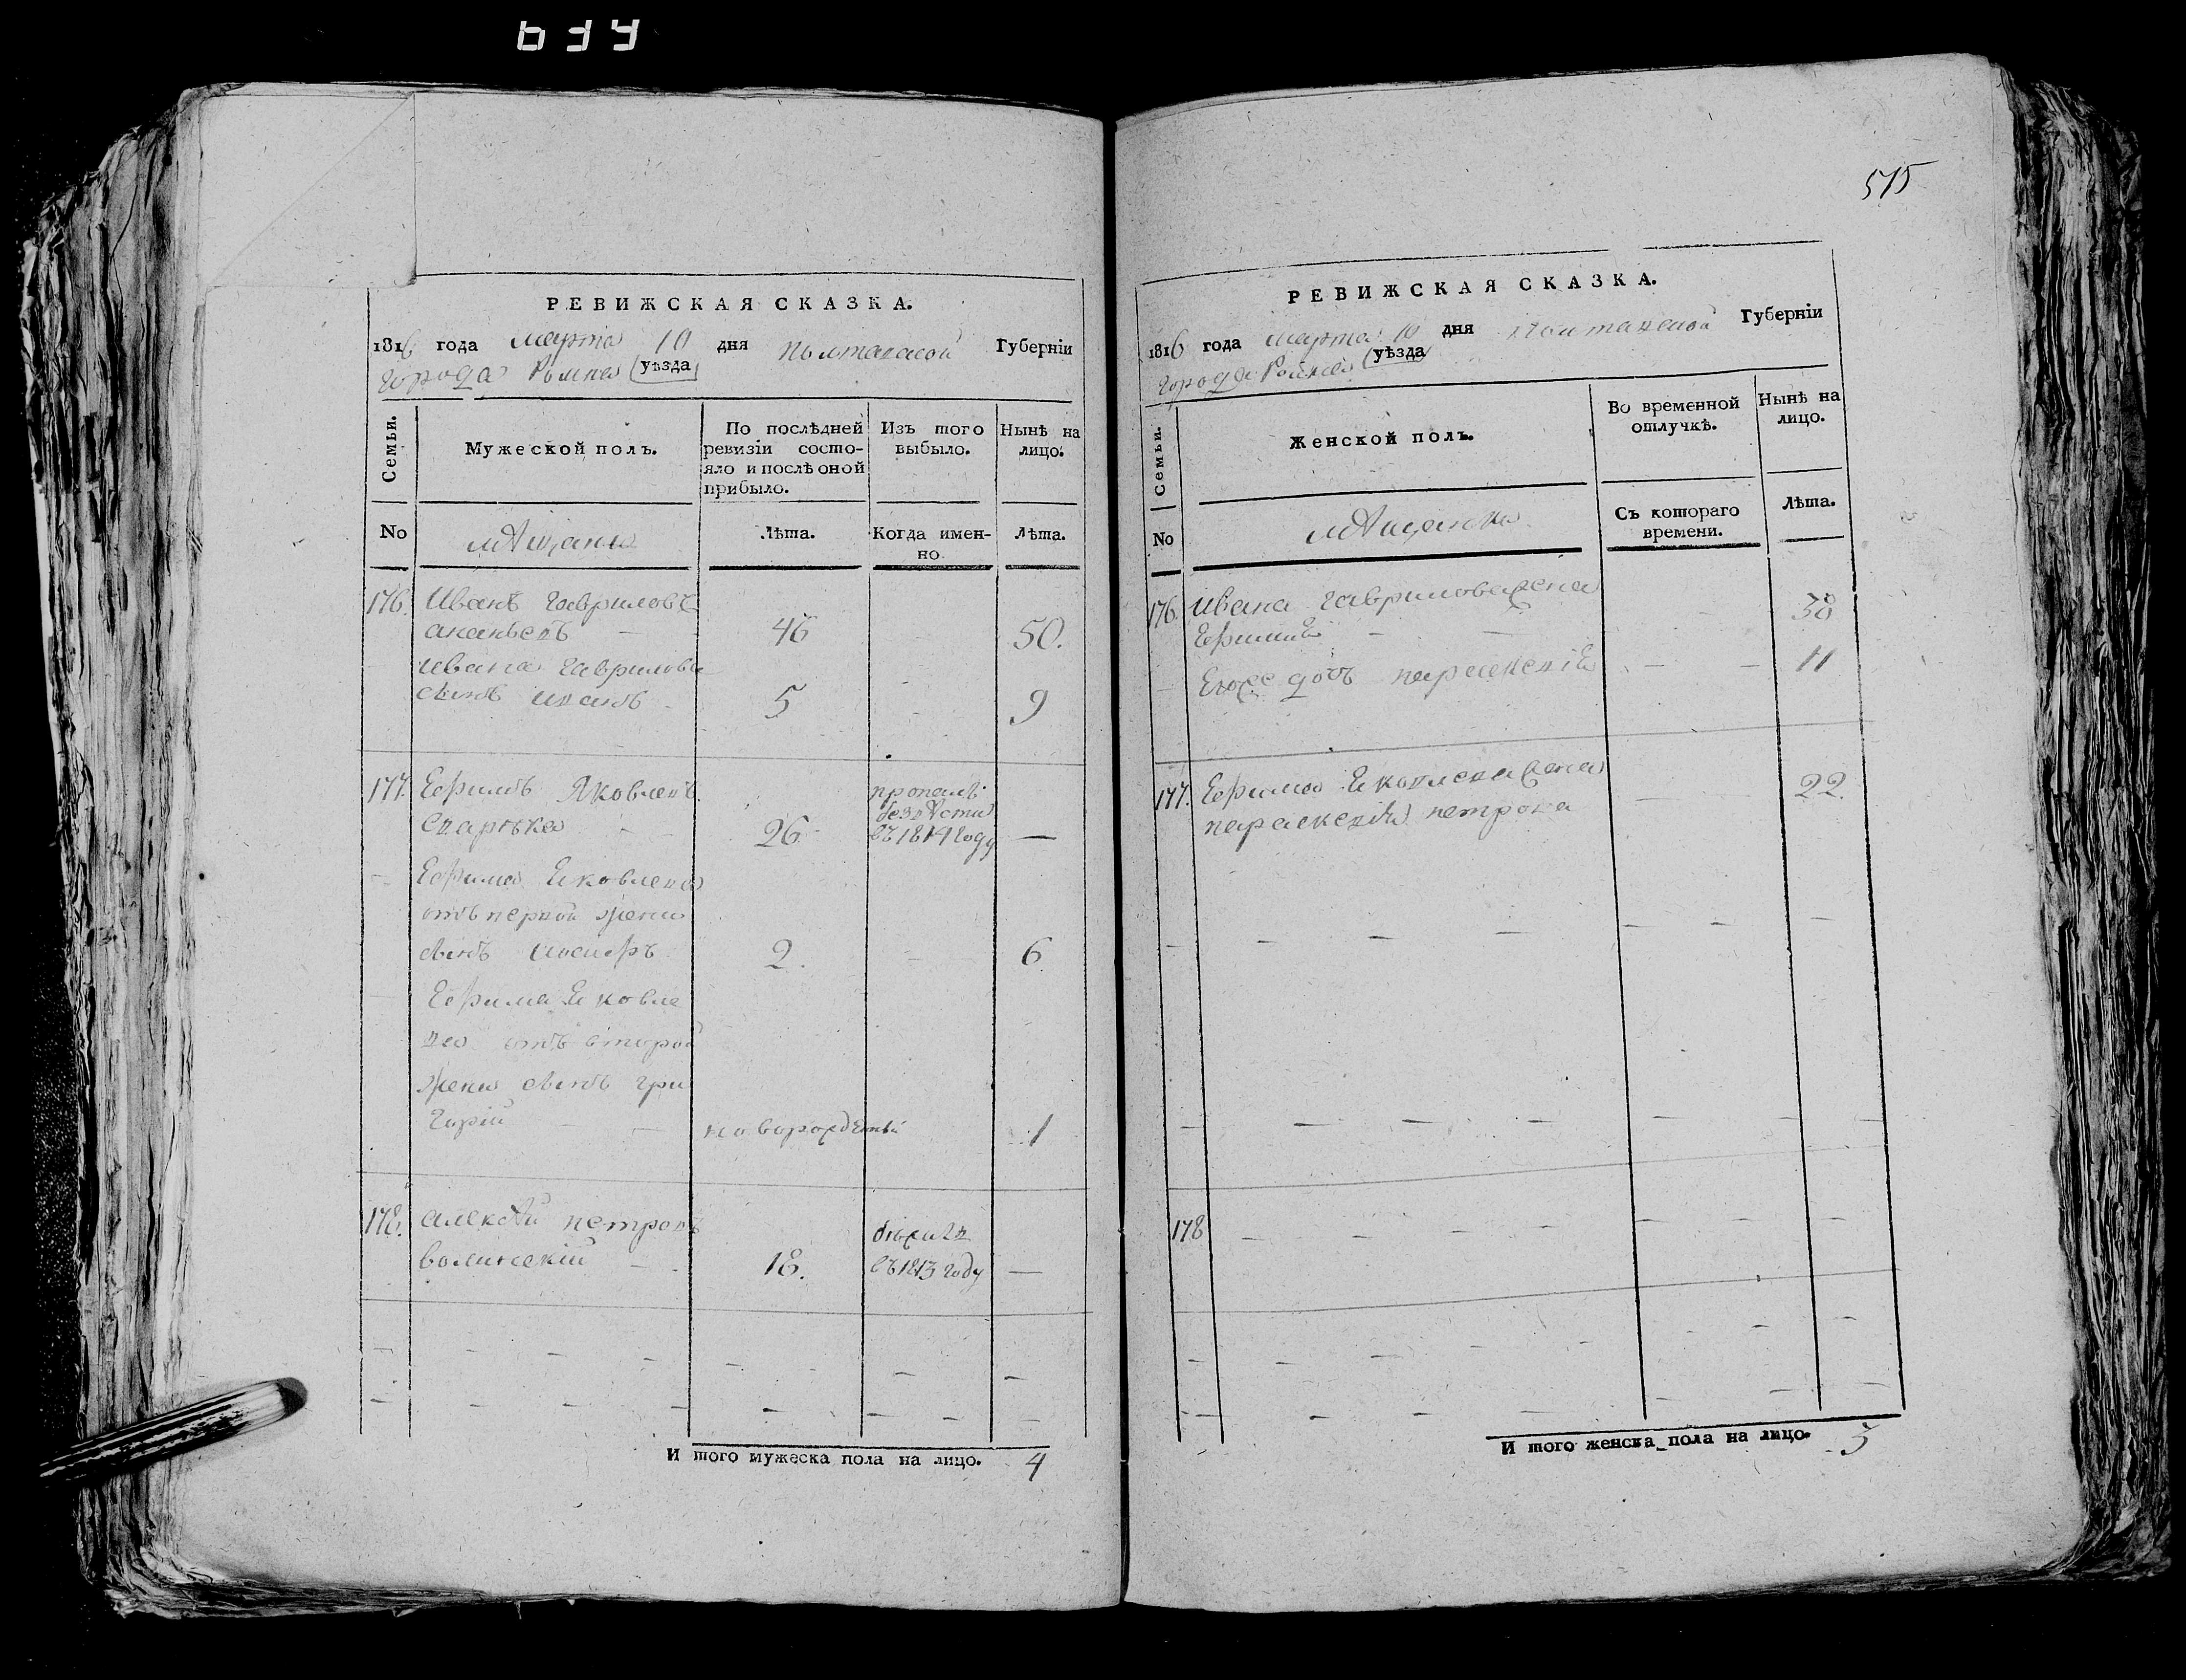 515
РЕВИЖСКАЯ СКАЗКА.
1816 года марта 10 дня Полтавской Губерніи
города Ромна уѣзда
Семьи.
Мужеской полъ.
По послѣдней ревизіи состояло и послѣ оной прибыло.
Изъ того выбыло.
Нынѣ на лицо.
No
мѣщане
Лѣта.
Когда именно
Лѣта.
176. Иванъ Гавриловъ
ананьевъ — 46 50.
ивана Гаврилова
сынъ иванъ 5 9
177. Ефимъ Яковлевъ пропалъ
безвѣсти
26 въ 1814 году —
Ефима Яковлева
отъ первой жени
сынъ Иосифъ 2. 6
Ефима Яковле
ва отъ второй
жени сынъ гри
горій — новорожденый 1
178. алексѣй петровъ бѣжалъ
волинскій — 18. въ 1813 году —
И того мужеска пола на лицо. 4
РЕВИЖСКАЯ СКАЗКА.
1816 года марта 10 дня Полтавской Губерніи
города Ромна уѣзда
Семьи.
Женской полъ.
Во временной отлучкѣ.
Нынѣ на лицо.
No
мѣщанки
Съ котораго времени.
Лѣта.
176. ивана гаврилова жена 38
Еюже дочь параскевія 11
177. Ефима Яковлева жена 22
параскевія петрова
178
И того женска пола на лицо. 3